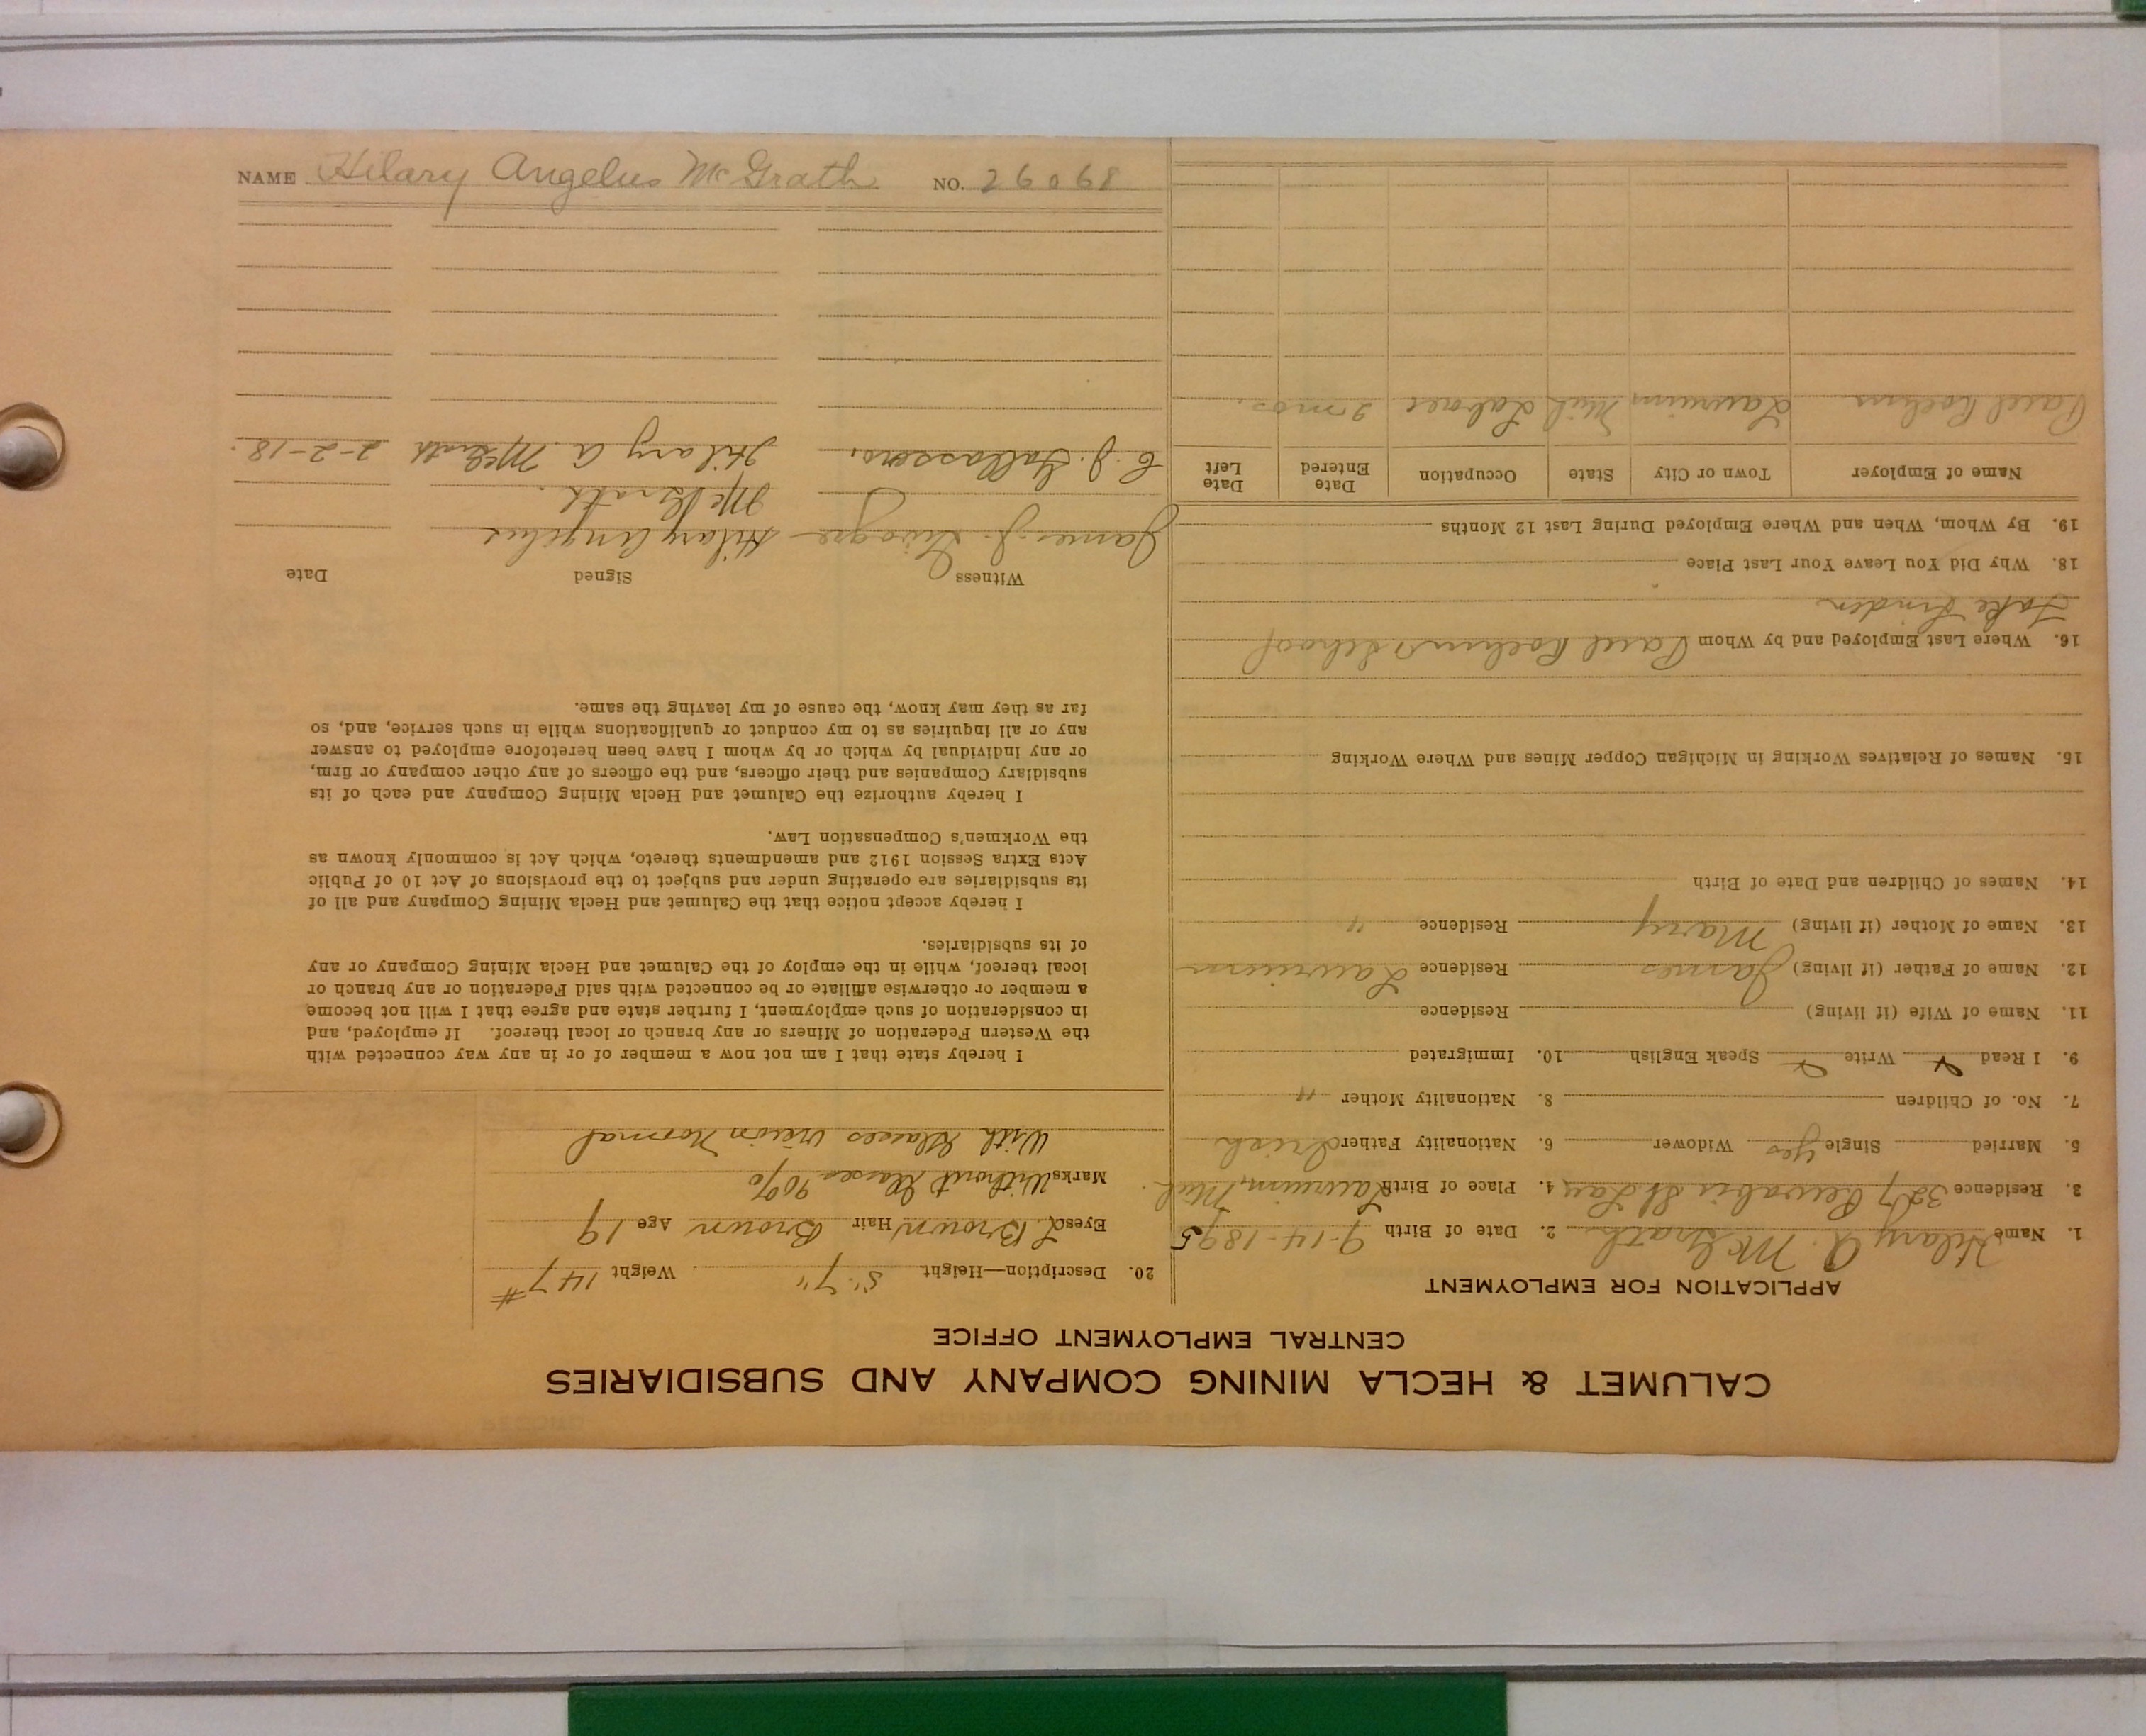 CALUMET & HECLA MINING COMPANY AND SUBSIDIARIES
CENTRAL EMPLOYMENT OFFICE
APPLICATION FOR EMPLOYMENT
1. Name Hilary A. McGrath 2. Date of Birth 9-14-1895
3. Residence 327 Kewabic St Lau 4. Place of Birth Laurium, Mich.
5. Married Single yes Widower 6. Nationality Father Irish
7. No. of Children 8. Nationality Mother "
9. I Read Write Speak English 10. Immigrated
11. Name of Wife (if living) Residence
12. Name of Father (if living) James Residence Laurium
13. Name of Mother (if living) Mary Residence "
14. Names of Children and Date of Birth
15. Names of Relatives Working in Michigan Copper Mines and Where Working
16. Where Last Employed and by Whom Paul School
Lake Linden
18. Why Did You Leave Your Last Place
19. By Whom, When and Where Employed During Last 12 Months
Name of Employer Town or City State Occupation Date Entered Date Left
Paul Laurium Mich Laborer 2 mos.
20. Description—Height 5' 7" Weight 147 #
Eyes L Brown Hair Brown Age 19
Marks Without Glasses 90%
With Glasses Vision Normal
I hereby state that I am not now a member of or in any way connected with
the Western Federation of Miners or any branch or local thereof. If employed, and
in consideration of such employment, I further state and agree that I will not become
a member or otherwise affiliate or be connected with said Federation or any branch or
local thereof, while in the employ of the Calumet and Hecla Mining Company or any
of its subsidiaries.
I hereby accept notice that the Calumet and Hecla Mining Company and all of
its subsidiaries are operating under and subject to the provisions of Act 10 of Public
Acts Extra Session 1912 and amendments thereto, which Act is commonly known as
the Workmen's Compensation Law.
I hereby authorize the Calumet and Hecla Mining Company and each of its
subsidiary Companies and their officers, and the officers of any other company or firm,
or any individual by which or by whom I have been heretofore employed to answer
any or all inquiries as to my conduct or qualifications while in such service, and, so
far as they may know, the cause of my leaving the same.
Witness Signed Date
James J. Hilary Angelus
McGrath.
C. J. Hilary A. McGrath 2-2-18.
NAME Hilary Angelus McGrath NO. 26068